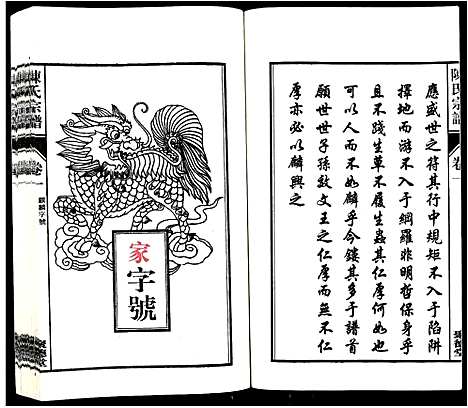 陳氏宗譜
卷一
應盛世之符其行中規矩不入于陷阱
擇地而游不入于網羅非明哲保身乎
且不踐生草不履生蟲其仁厚何如也
可以人而不如麟乎今鏤其多于譜首
願世世子孫效文王之仁厚而無不仁
厚亦必以麟興之
陳氏宗譜
卷
麒麟字號
家字號